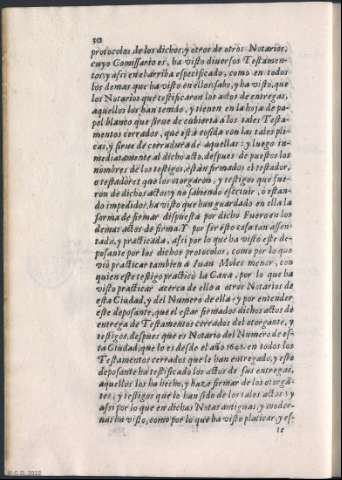 30
protocolos de los dichos, y otros de otros Notarios,
cuyo Comissario es, ha visto diversos Testamen-
tos, y assi en el arriba especificado, como en todos
los demas que ha visto en ellos, sabe, y ha visto, que
los Notarios que testificaron los actos de entregas,
aquellos los han tenido, y tienen en la hoja de pa-
pel blanco que sirve de cubierta a los tales Testa-
mentos cerrados, que está cosida con las tales plí-
cas, y sirve de cerradura de aquellas: y luego in-
mediatamente al dicho acto, despues de puestos los
nombres de los testigos, están firmados el testador,
o testadores que los otorgaron, y testigos que fue-
ron de dichos actos: y no sabiendo escrivir, ó estan-
do impedidos, ha visto que han guardado en ella la
forma de firmar dispuesta por dicho Fuero en los
demas actos de firma. Y por ser esto cosa tan assen-
tada, y practicada, assi por lo que ha visto este de-
posante por los dichos protocolos, como por lo que
vió practicar tambien à Juan Moles menor, con
quien este testigo practicò la Gana, por lo que ha
visto practicar acerca de ello a otros Notarios de
esta Ciudad, y del Numero de ella: y por entender
este deposante, que el estar firmados dichos actos de
entrega de Testamentos cerrados del otorgante, y
testigos, despues que es Notario del Numero de es-
ta Ciudad, que lo es desde el año en todos los
Testamentos cerrados que le han entregado, y este
deposante ha testificado los actos de sus entregas,
aquellos los ha hecho, y haze firmar de los otorgã-
tes, y testigos que lo han sido de los tales actos: y
assi por lo que en dichas Notas antiguas, y moder-
nas ha visto, como por lo que ha visto platicar, y es-
te
© C.D. 2010